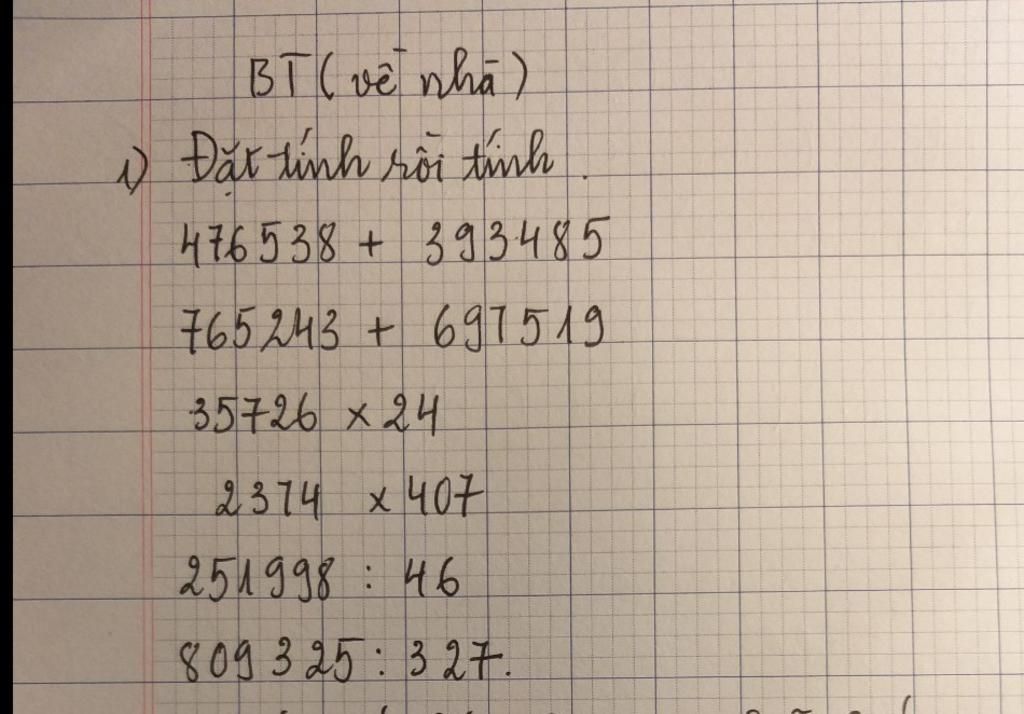 BT (về nhà)
1) Đặt tính rồi tính.
476538 + 393485
765243 + 697519
35726 x 24
2374 x 407
251998 : 46
809325 : 327.